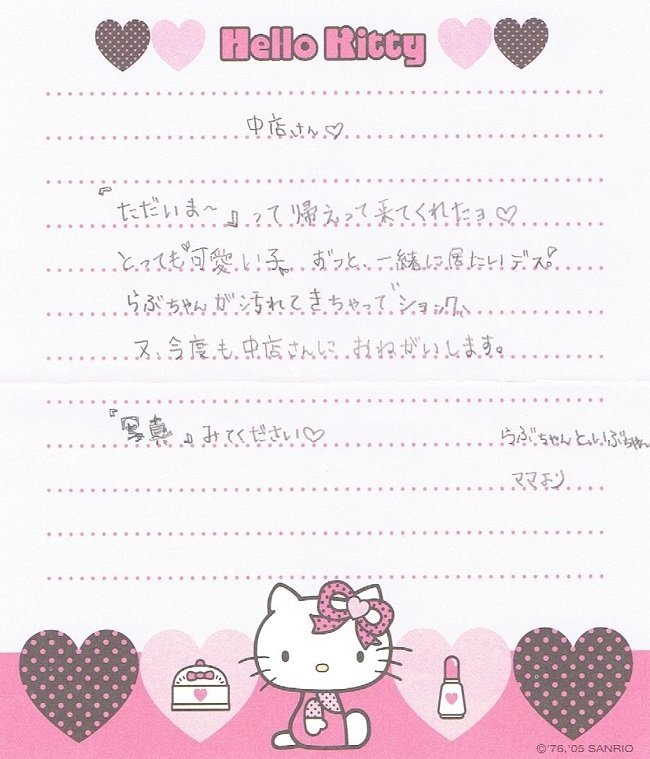 Hello Kitty
中店さん♡
『ただいま〜』って帰えって来てくれたヨ♡
とっても『可愛い子』 ずっと、一緒に居たいデス。
らぶちゃんが汚れてきちゃって ショック、
又、今度も中店さんに おねがいします。
『写真』みてください♡
らぶちゃんといぶちゃん
ママより
©'76,'05 SANRIO